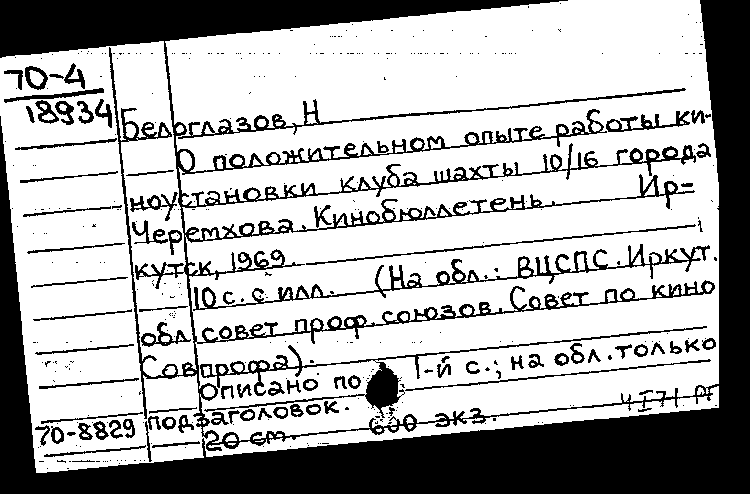 70-4
18934
Белоглазов, Н
О положительном опыте работы ки-
ноустановки клуба шахты 10/16 города
Черемхова. Кинобюллетень. Ир=
кутск, 1969.
10 с. с илл. (На обл.: ВЦСПС. Иркут.
обл. совет проф. союзов. Совет по кино
Совпрофа).
Описано по 1-й с.; на обл. только
подзаголовок.
70-8829
20 см. 600 экз.
4 I 71